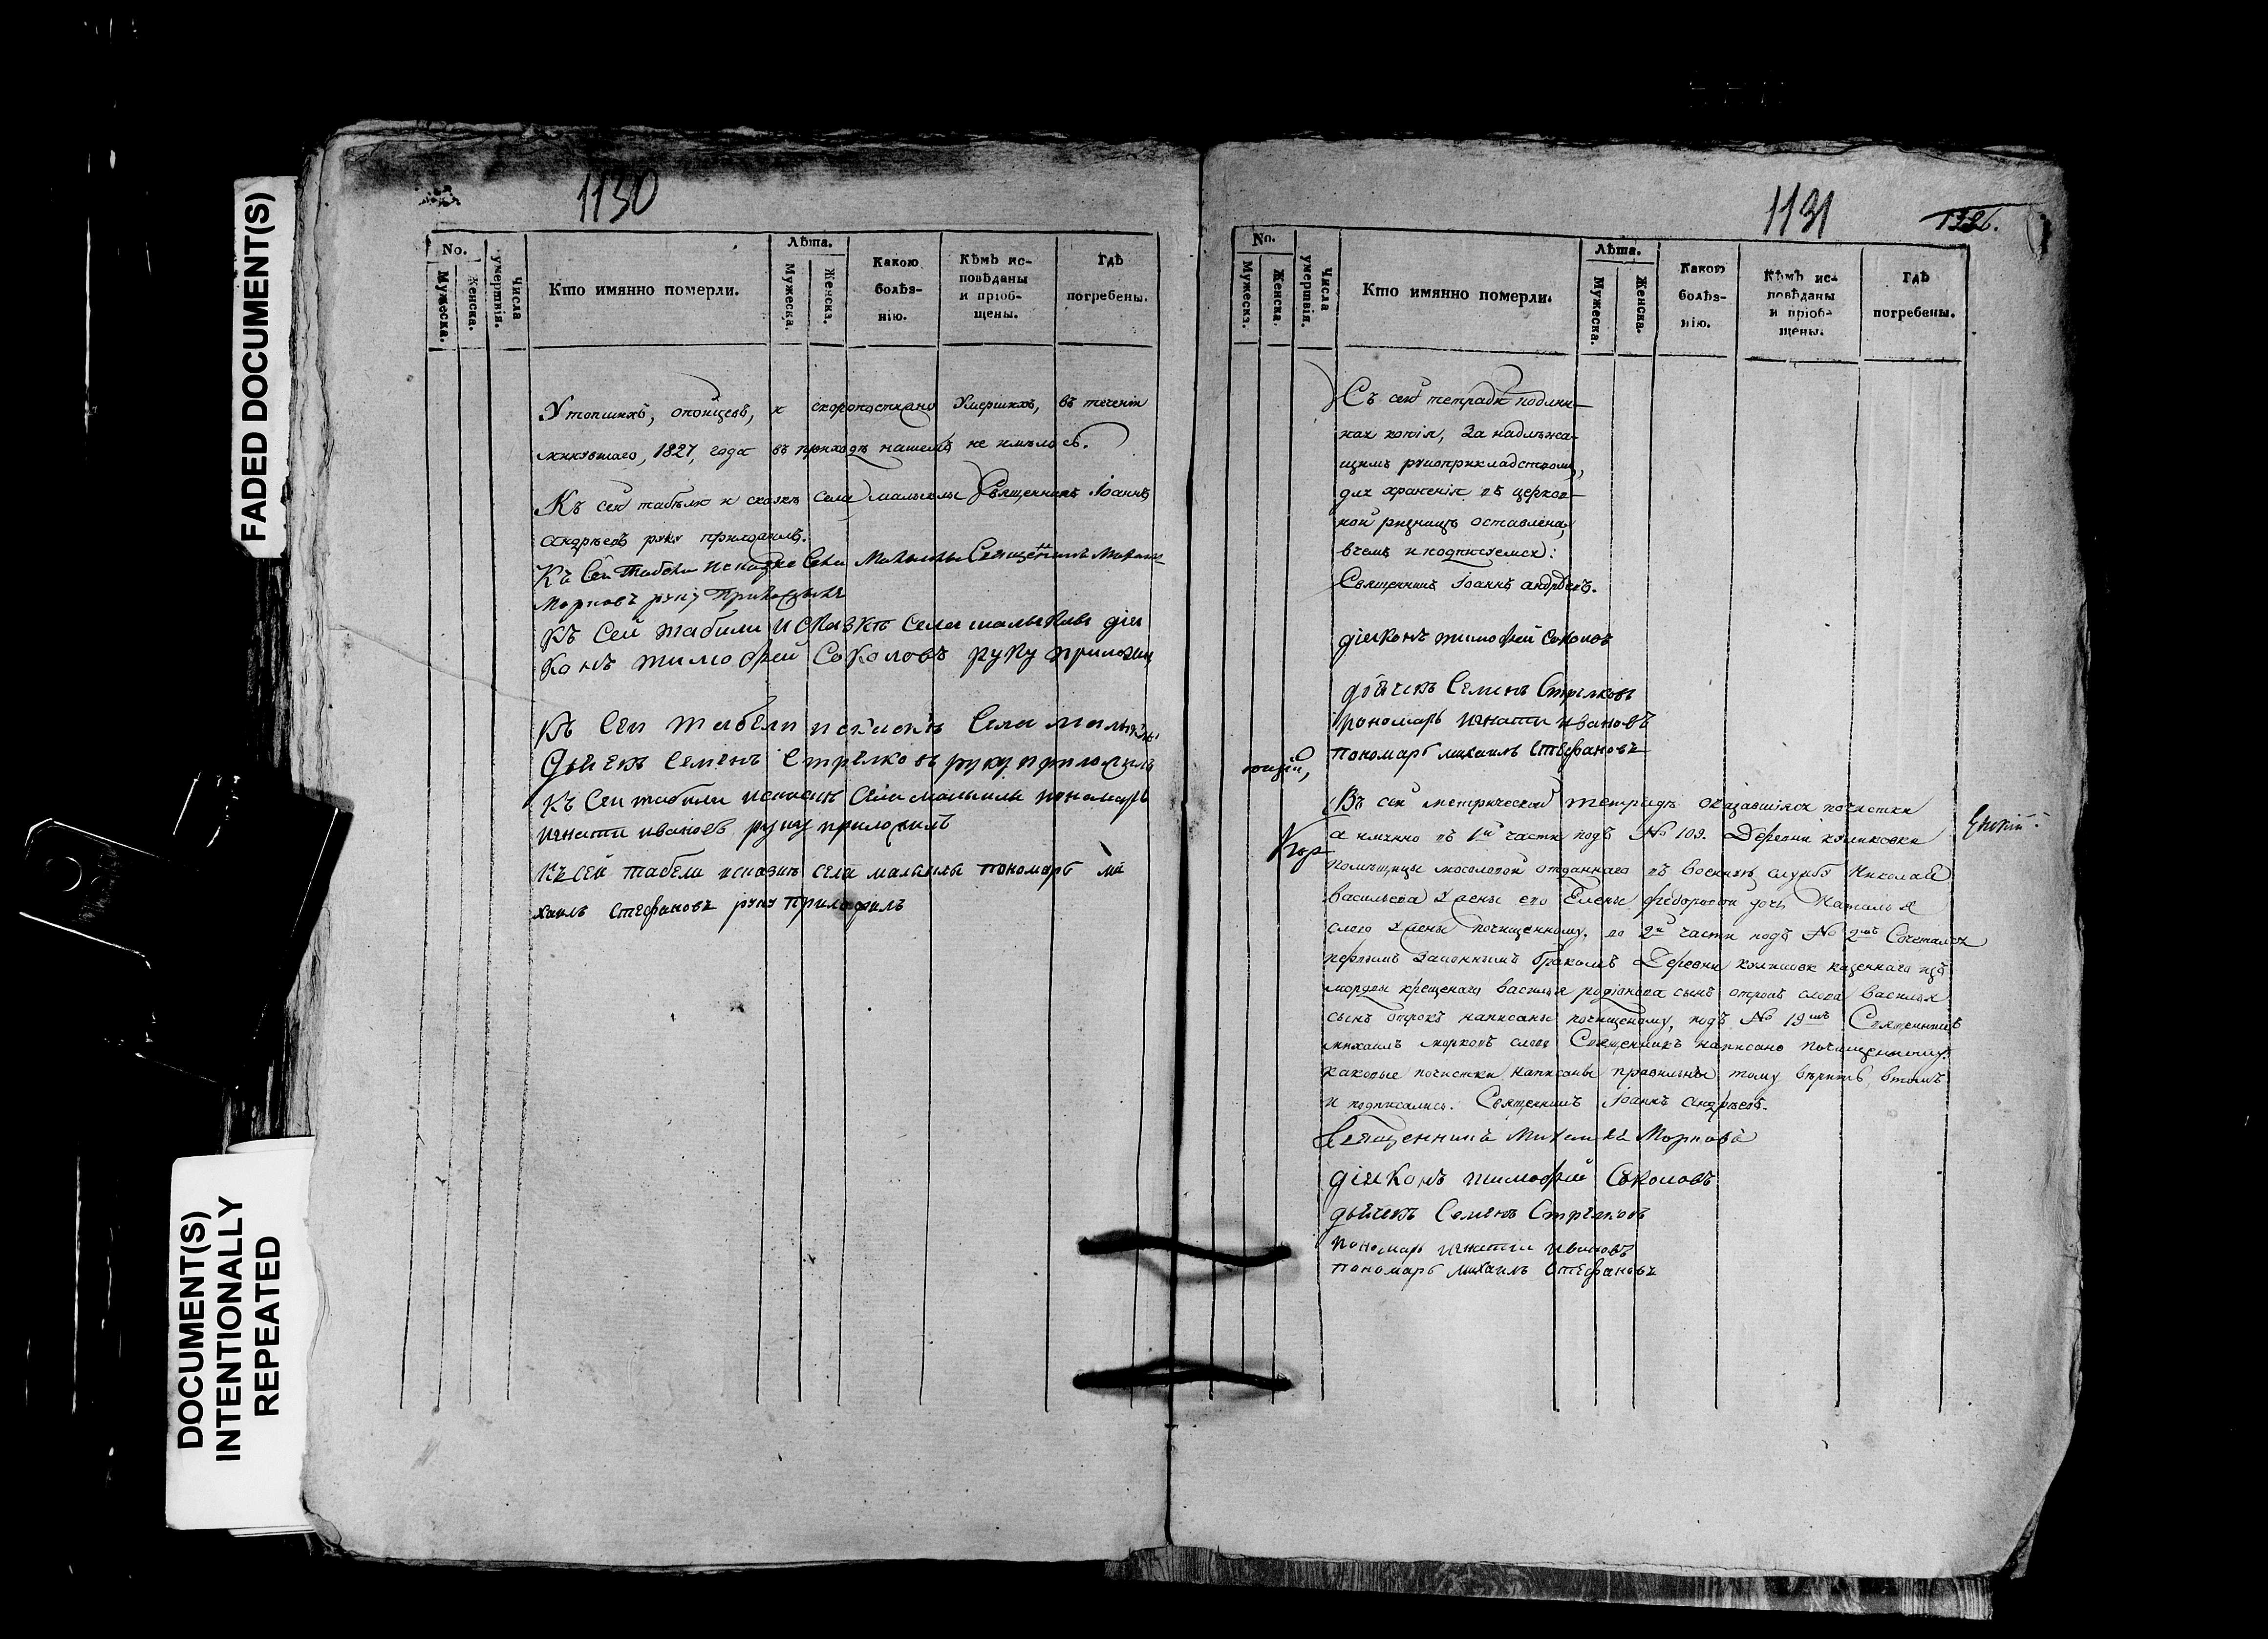 FADED DOCUMENT(S)
DOCUMENT(S)
INTENTIONALLY
REPEATED
1130
No.
Мужеска.
Женска.
Числа умертвія.
Кто имянно померли.
Лѣта.
Мужеска.
Женска.
Какою болѣз-
нію.
Кѣмъ ис-
повѣданы
и пріоб-
щены.
Гдѣ
погребены.
Утопшихъ, опойцовъ, и скоропостижно Умершихъ, въ теченіи
минувшаго, 1827, года въ приходѣ нашемъ не имѣлось.
Къ сей табѣли и сказкѣ села малыклы Священникъ Іоаннъ
Андрѣевъ руку приложилъ.
Къ Сей Табели и сказке Села Малыклы Священникъ
Марковъ руку Приложилъ
Къ Сей табили и сказкѣ села малыклы дія
конъ тимофей Соколовъ руку приложи
Къ Сеи табели Села
Дьячекъ Семенъ Стрелковъ руку приложилъ
Къ Сеи табели Села малыклы пономарь
игнати ивановъ руку приложилъ
Къ сей табели и сказкѣ села малыклы пономарь ми
хаилъ Стефановъ руку приложилъ
1131
No.
Мужеска.
Женска.
Числа умертвія.
Кто имянно померли.
Лѣта.
Мужеска.
Женска.
Какою
болѣз-
нію.
Кѣмъ ис-
повѣданы
и пріоб-
щены.
Гдѣ
погребены.
Съ сей тетради подлин-
ная копія, За надлѣжа-
щимъ рукоприкладствомъ,
для храненія въ церков-
ной ризницѣ оставлена,
вчемъ и подписуемся:
Священникъ Іоаннъ андрѣевъ.
діяконъ тимофей соколовъ
дьячекъ Семенъ Стрелковъ
пономарь игнати ивановъ
пономарь михаилъ Стефановъ
Въ сей метрической тетрадѣ оказавшіяся почистки
а имянно въ 1й части подъ № 109. Деревни
помѣщицы отданнаго въ военную службу Николая
Васильева жены его Елены федоровой дочь Наталья
слово жены почищенному, во 2й части подъ № 2мъ Сочетался
первымъ законнымъ бракомъ Деревни казеннаго изъ
мордвы крещенаго василья родіонова сынъ отрокъ слова василья
сынъ отрокъ написаны почищеному, подъ № 19мъ Священникъ
михаилъ марковъ слово Священникъ написано почищенному.
каковые почистки написаны правильны тому вѣрить, втомъ
и подписались. Священникъ Іоаннъ Андрѣевъ.
Священникъ Михаилъ Марковъ
діяконъ тимофей Соколовъ
дьячекъ Семенъ Стрелковъ
пономарь игнатіи ивановъ
пономарь михаилъ Стефановъ